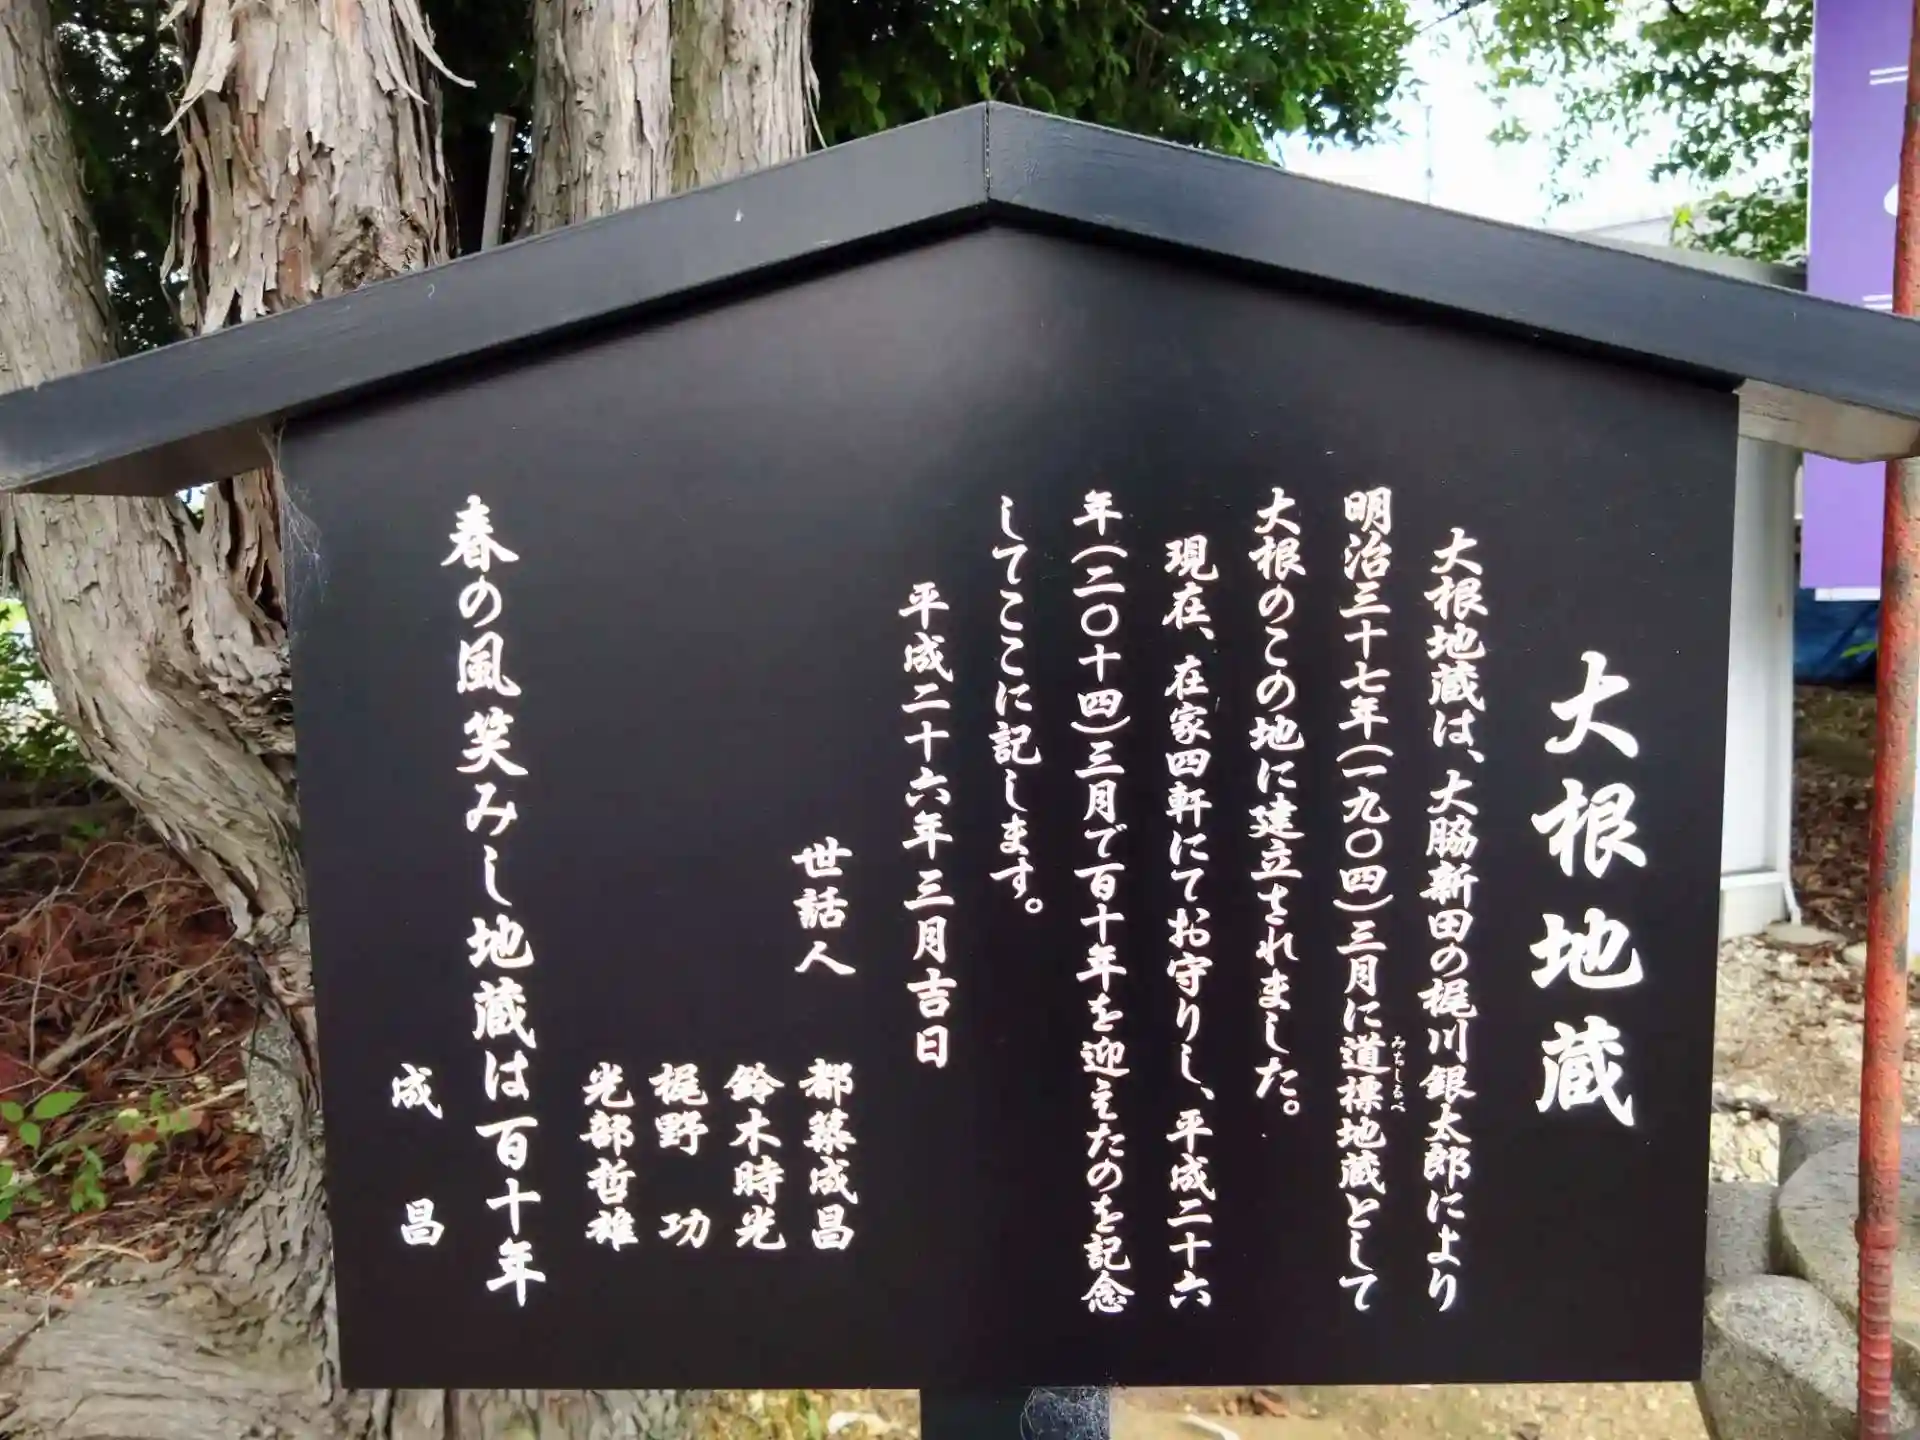 大根地蔵
大根地蔵は、大脇新田の梶川銀太郎により
明治三十七年(一九〇四)三月に道標地蔵として
みちしるべ
大根のこの地に建立されました。
現在、在家四軒にてお守りし、平成二十六
年(二〇十四)三月で百十年を迎えたのを記念
してここに記します。
平成二十六年三月吉日
世話人
都築成昌
鈴木時光
梶野 功
光部哲雄
春の風笑みし地蔵は百十年
成 昌